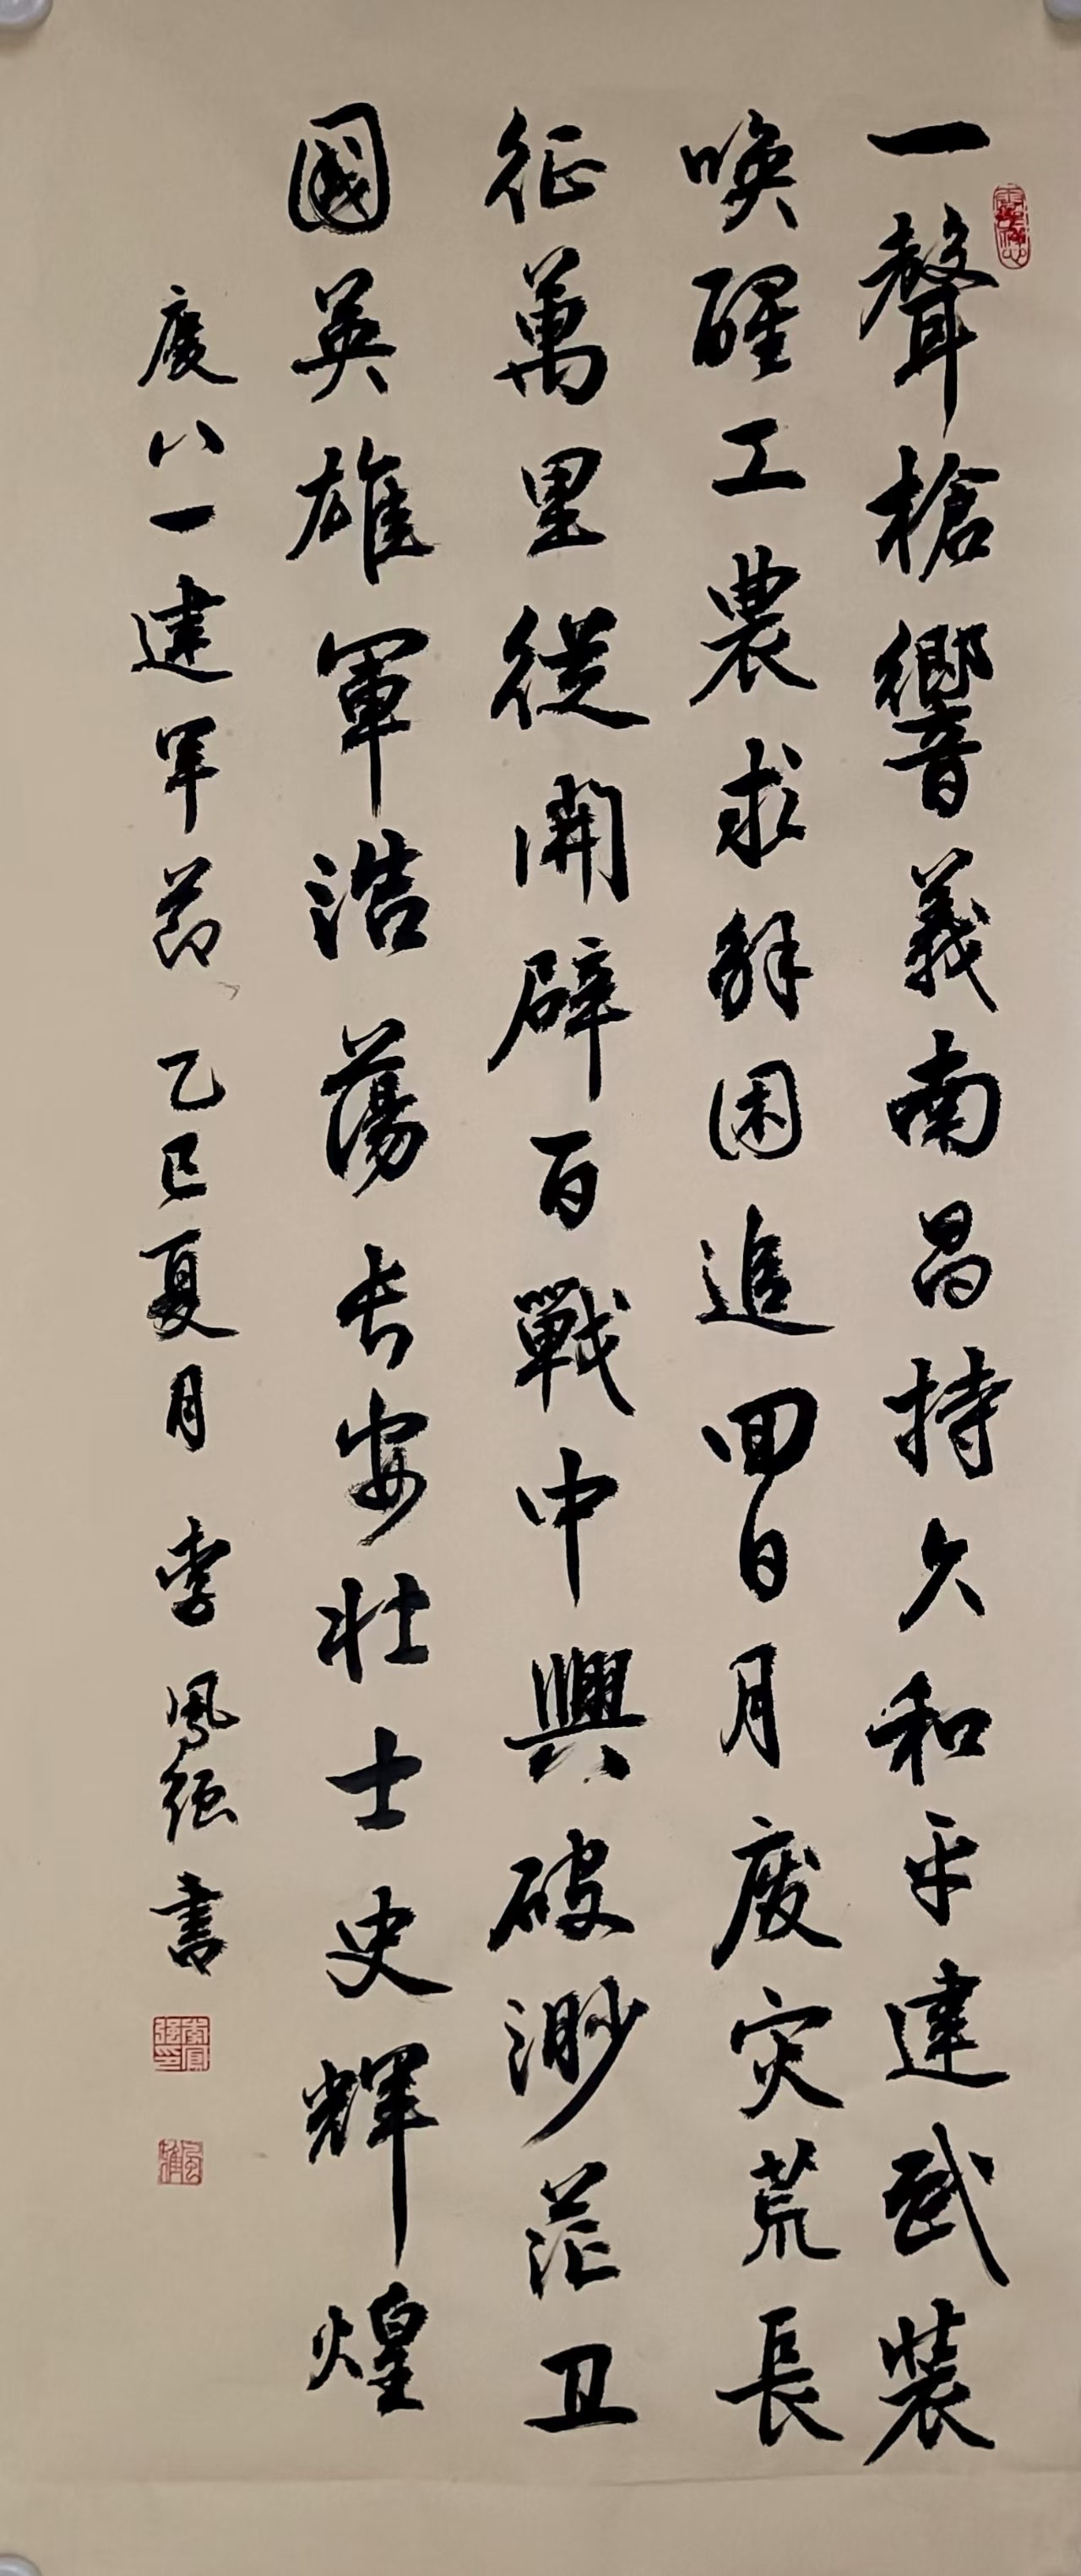 一聲槍響義南昌持久和平建武裝
喚醒工農求解困追回日月废灾荒長
征萬里從開辟百戰中興破渺茫且
國英雄軍浩蕩长安壯士史輝煌
庆八一建军节 乙巳夏月 李凤强書